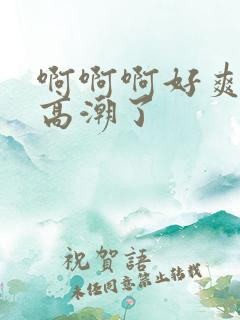 啊啊啊好爽
高潮了
祝賀語
未任同意禁止转载